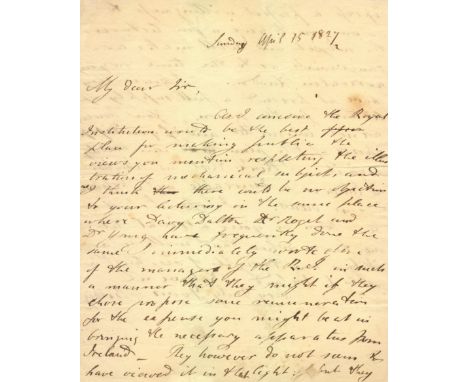 Sunday April 15 1827
My dear Sir,
As I conceive the Royal
Institution would be the best
place for making public the
views you mention respecting the illus
tration of mechanical subjects and
I think there could be no objection
to your lecturing in the same place
where Davy Dalton Dr Roget and
Dr Young have frequently done the
same I immediately wrote to one
of the managers of the R.I. in such
a manner that they might if they
chose propose some remuneration
for the expense you might be at in
bringing the necessary apparatus from
Ireland — They however do not seem to
have viewed it in that light: but they